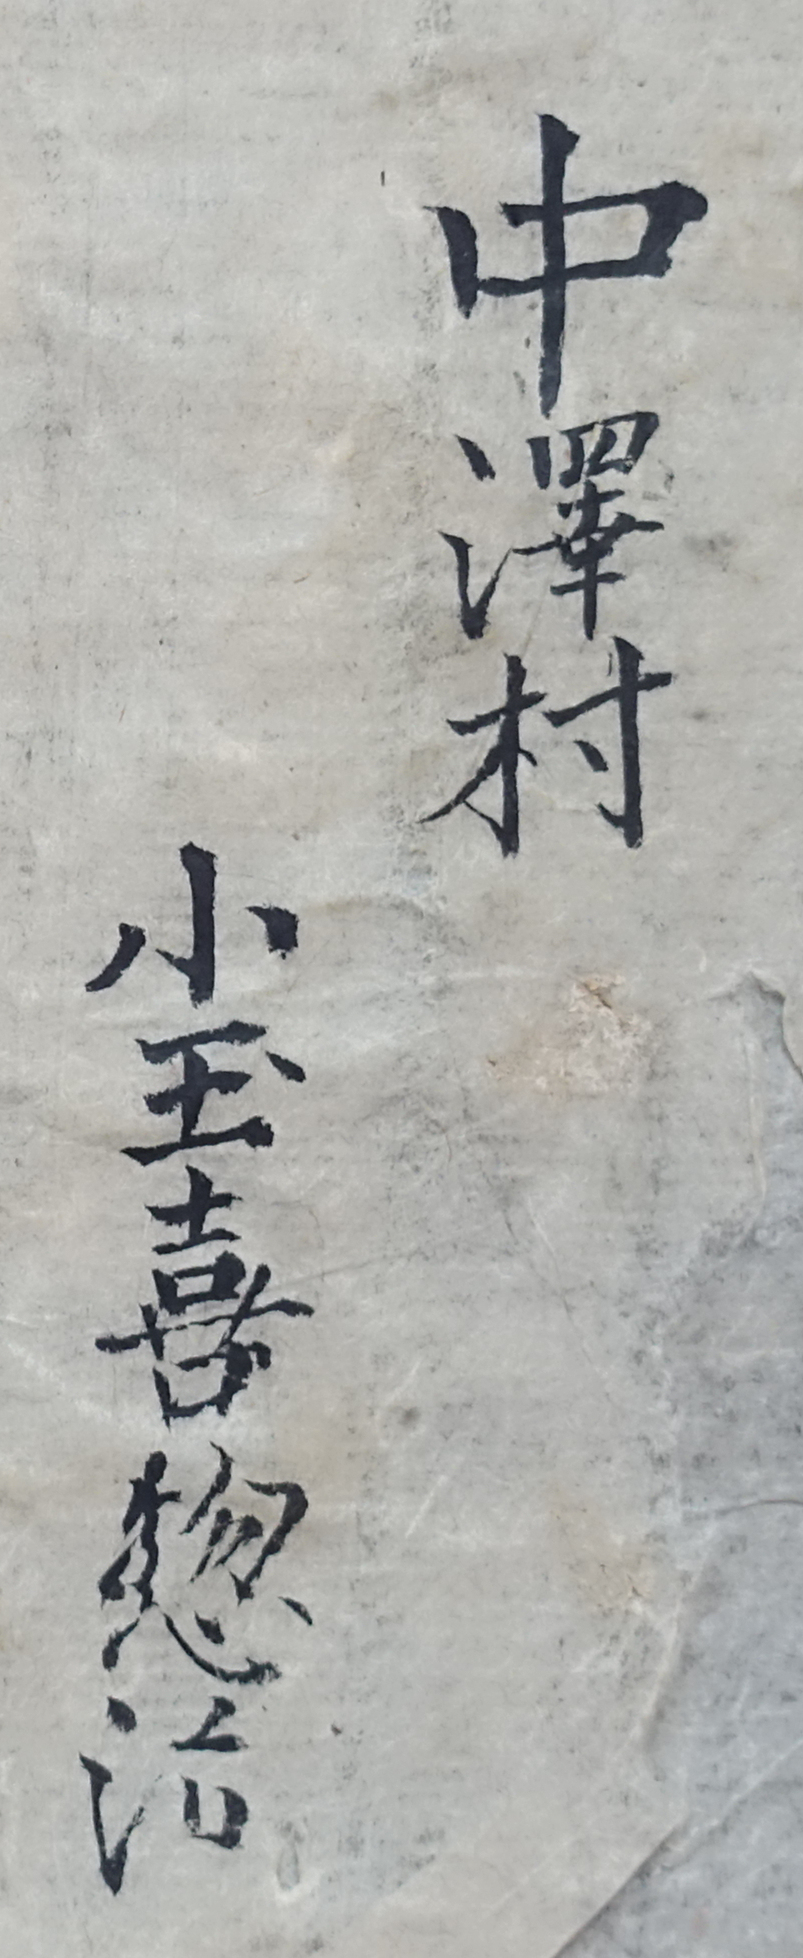 中澤村
小玉喜惣治